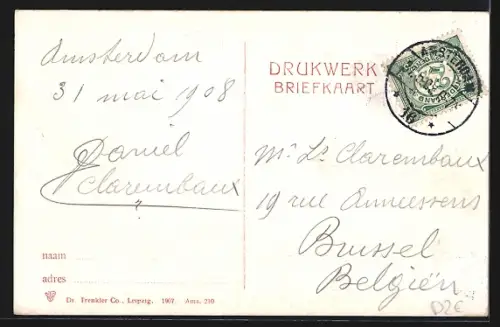 Amsterdam
31 mai 1908
Daniel
Clarembaux
naam
adres
Dr. Trenkler Co., Leipzig. 1907. Ams. 239
DRUKWERK
BRIEFKAART
AMSTERDAM
Mr Ls Clarembaux
19 rue Anneessens
Brussel
Belgiën